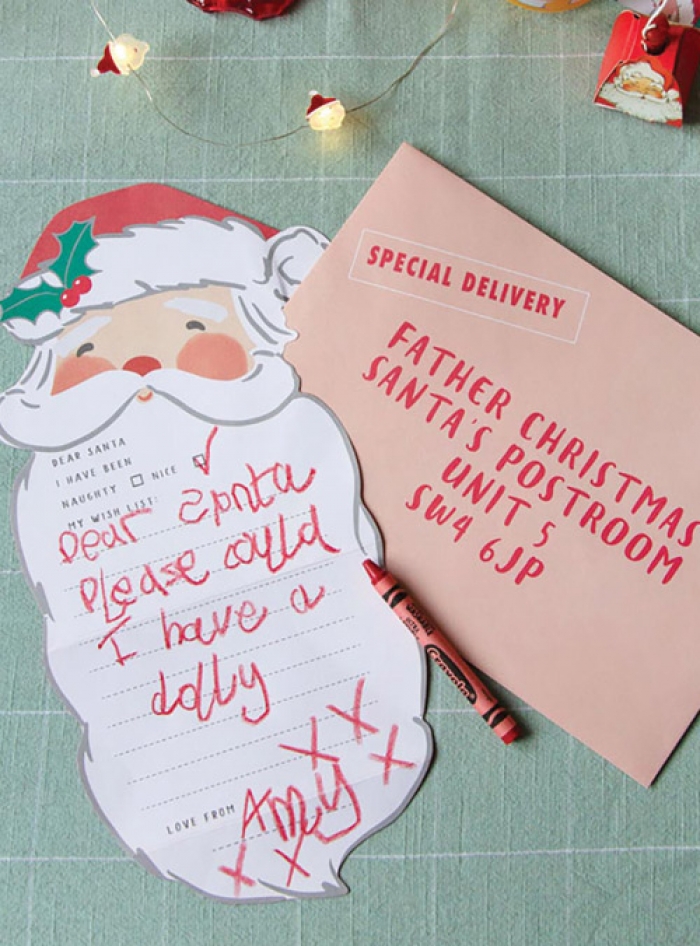 DEAR SANTA
I HAVE BEEN
NAUGHTY NICE
MY WISH LIST:
Dear Santa
please could
I have a
dolly
X X
X
LOVE FROM Amy
X X
SPECIAL DELIVERY
FATHER CHRISTMAS
SANTA'S POSTROOM
UNIT 5
SW4 6JP
Crayola